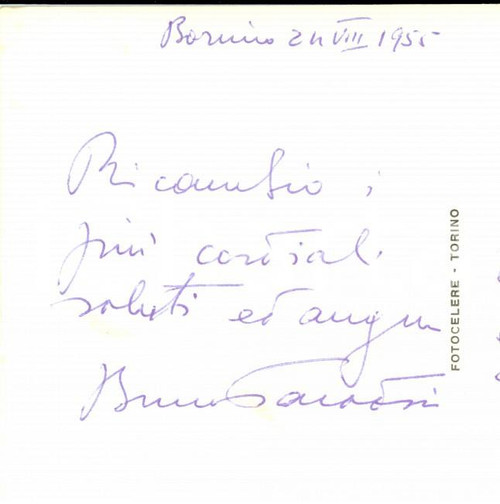 24 VIII 1955
Ricambio i
più cordiali
saluti ed auguri
Bruno
FOTOCELERE - TORINO